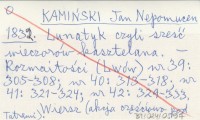 KAMIŃSKI Jan Nepomucen
1832. Lunatyk czyli sześć
wieczorów kasztelana. –
Rozmaitości (Lwów) nr 39:
305-308; nr 40: 314-318; nr
41: 321-324; nr 42: 329-333.
Wiersz (akcja częściowo pod
Tatrami).